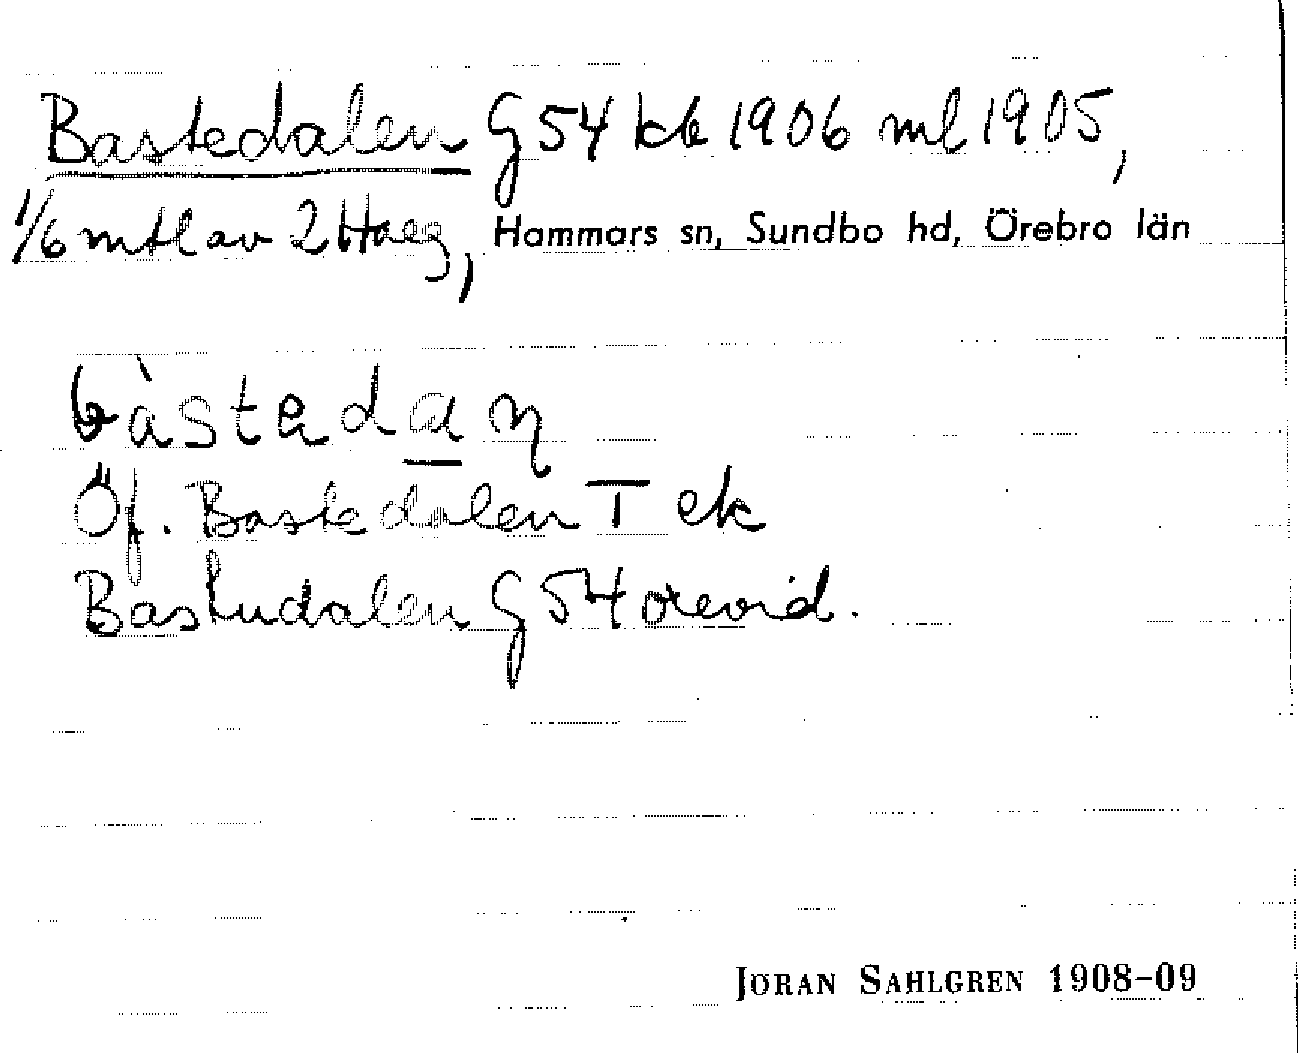 Bastedalen G 54 kb 1906 ml 1905,
1/6 mtl av 2 Haeg, Hammars sn, Sundbo hd, Örebro län
bàstedaɳ
Öf. Bastedalen T ek
Bastudalen G 54 orevid.
JÖRAN SAHLGREN 1908–09